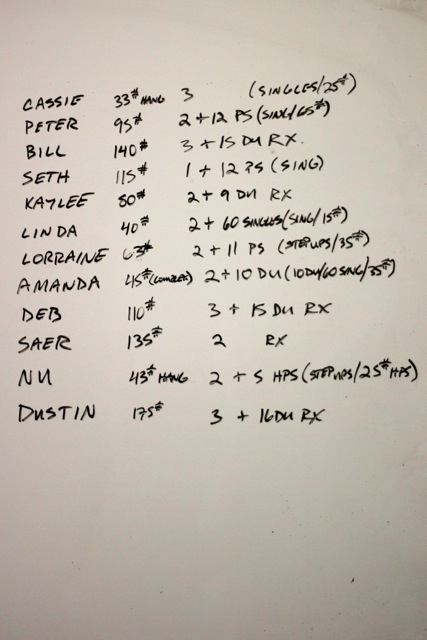 CASSIE 33# HANG 3 (SINGLES/25#)
PETER 95# 2 + 12 PS (SING/65#)
BILL 140# 3 + 15 DU RX.
SETH 115# 1 + 12 PS (SING)
KAYLEE 80# 2 + 9 DU RX
LINDA 40# 2 + 60 SINGLES (SING/15#)
LORRAINE 63# 2 + 11 PS (STEPUPS/35#)
AMANDA 45# (COMPLEX) 2 + 10 DU (10DU/60 SING/35#)
DEB 110# 3 + 15 DU RX
SAER 135# 2 RX
NU 43# HANG 2 + 5 HPS (STEPUPS/25# HPS)
DUSTIN 175# 3 + 16 DU RX